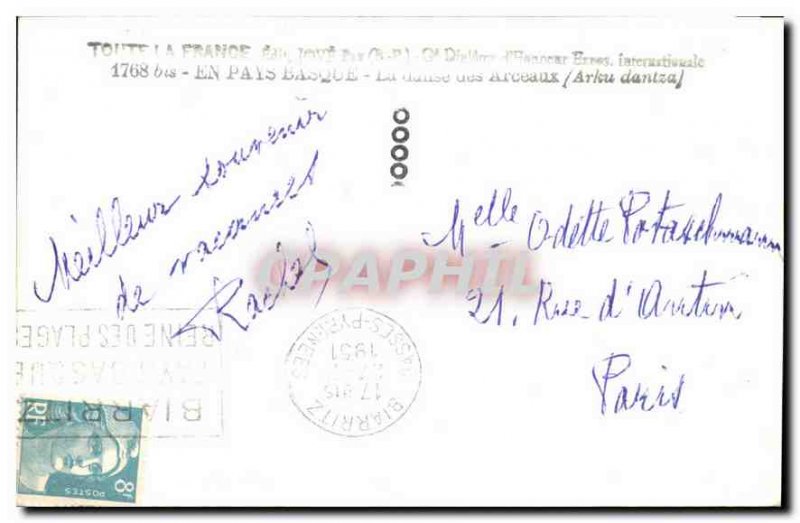 TOUTE LA FRANCE Édit. JOVÉ Pau (B.-P.) - Gd Diplôme d'Honneur Expos. internationale
1768 bis - EN PAYS BASQUE - La danse des Arceaux (Arku dantza)
0000
Meilleur souvenir
de vacances
Rachel
Melle Odette Potaschmann
21, Rue d'Antin
Paris
CPAPHIL
BIARRITZ
PAYS BASQUE
REINE DES PLAGES
BIARRITZ
BASSES-PYRENEES
17
1951
RF
POSTES
8F